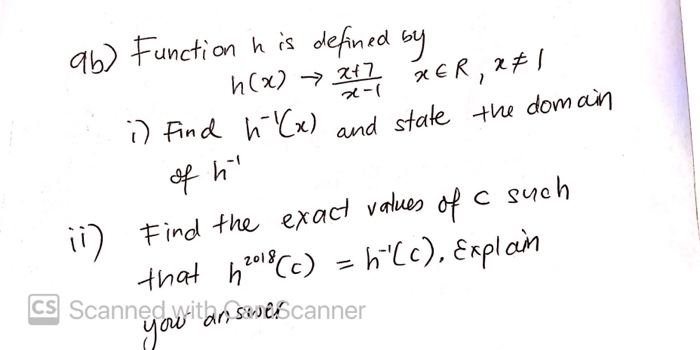 9b) Function h is defined by
h(x) → x+7/x-1 x ∈ R, x ≠ 1
i) Find h⁻¹(x) and state the domain
of h⁻¹
ii) Find the exact values of c such
that h²⁰¹⁸(c) = h⁻¹(c). Explain
your answer
CS Scanned with CamScanner